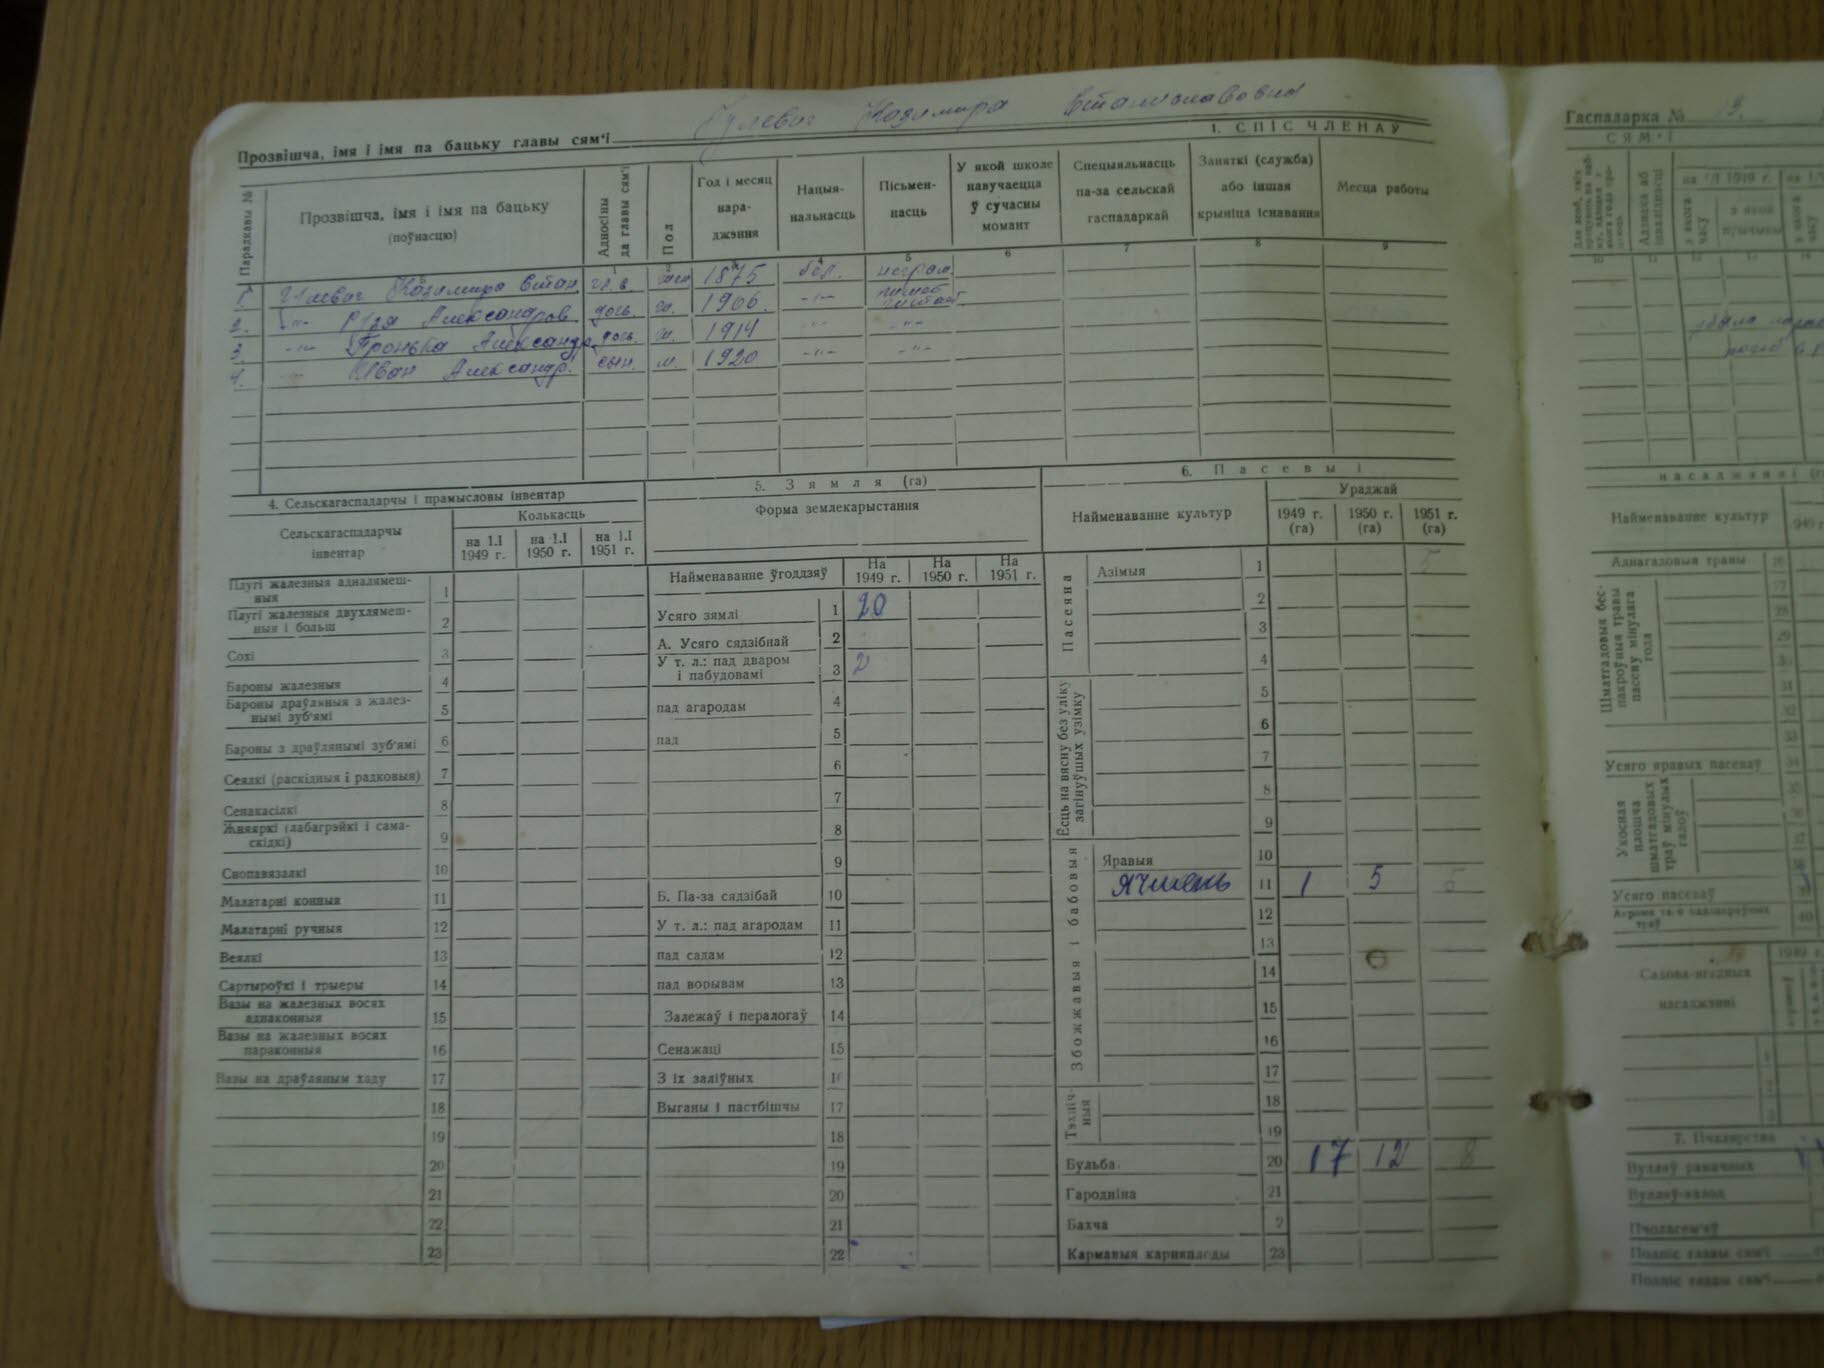 Прозвішча, імя і імя па бацьку главы сям'і Казимира Станиславовна
Гаспадарка № 13.
1. СПІС ЧЛЕНАЎ
СЯМ'І
Парадкавы №
Прозвішча, імя і імя па бацьку
(поўнасцю)
Адносіны да главы сям'і
Пол
Год і месяц нара-джэння
Нацыя-нальнасць
Пісьмен-насць
У якой школе навучаецца ў сучасны момант
Спецыяльнасць па-за сельскай гаспадаркай
Заняткі (служба) або іншая крыніца існавання
Месца работы
1 2 3 4 5 6 7 8 9
1. Казимира Стан гл. с. жен 1875 бел. неграм.
2. -"- Александров дочь ж. 1906. -"-
3. -"- Александр. дочь ж. 1914 -"- -"-
4. -"- Иван Александр. сын. м. 1920 -"- -"-
4. Сельскагаспадарчы і прамысловы інвентар
Сельскагаспадарчы інвентар
Колькасць
на 1.I 1949 г. на 1.I 1950 г. на 1.I 1951 г.
Плугі жалезныя адналямеш-ныя 1
Плугі жалезныя двухлямеш-ныя і больш 2
Сохі 3
Бароны жалезныя 4
Бароны драўляныя з жалез-нымі зуб'ямі 5
Бароны з драўлянымі зуб'ямі 6
Сеялкі (раскідныя і радковыя) 7
Сенакасілкі 8
Жняяркі (лабагрэйкі і сама-скідкі) 9
Снопавязалкі 10
Малатарні конныя 11
Малатарні ручныя 12
Веялкі 13
Сартыроўкі і трыеры 14
Вазы на жалезных восях аднаконныя 15
Вазы на жалезных восях параконныя 16
Вазы на драўляным хаду 17
18
19
20
21
22
23
5. Зямля (га)
Форма землекарыстання
Найменаванне ўгоддзяў На 1949 г. На 1950 г. На 1951 г.
Усяго зямлі 1 20
А. Усяго сядзібнай 2
У т. л.: пад дваром і пабудовамі 3 2
пад агародам 4
пад 5
6
7
8
9
Б. Па-за сядзібай 10
У т. л.: пад агародам 11
пад садам 12
пад ворывам 13
Залежаў і пералогаў 14
Сенажаці 15
З іх заліўных 16
Выганы і пастбішчы 17
18
19
20
21
22
6. Пасевы і
Найменаванне культур
Ураджай
1949 г. (га) 1950 г. (га) 1951 г. (га)
Пасеяна
Азімыя 1 5
2
3
4
Ёсць на вясну без уліку загінуўшых узімку
5
6
7
8
9
Збожжавыя і бабовыя
Яравыя 10
Ячмень 11 1 5 5
12
13
14
15
16
17
Тэхніч-ныя
18
19
Бульба 20 17 12 8
Гародніна 21
Бахча 2
Кармавыя карняплоды 23
насаджэнні
Найменаванне культур
Аднагадовыя травы
Шматгадовыя бес-пакроўныя травы пасеву мінулага года
Усяго яравых пасеваў
Укосная плошча шматгадовых траў мінулых гадоў
Усяго пасеваў
Садова-ягадныя насаджэнні
1949 г.
7. Пчалярства
Вуллёў рамачных
Вуллёў-калод
Пчоласем'яў
Подпіс главы сям'і
Подпіс главы сям'і